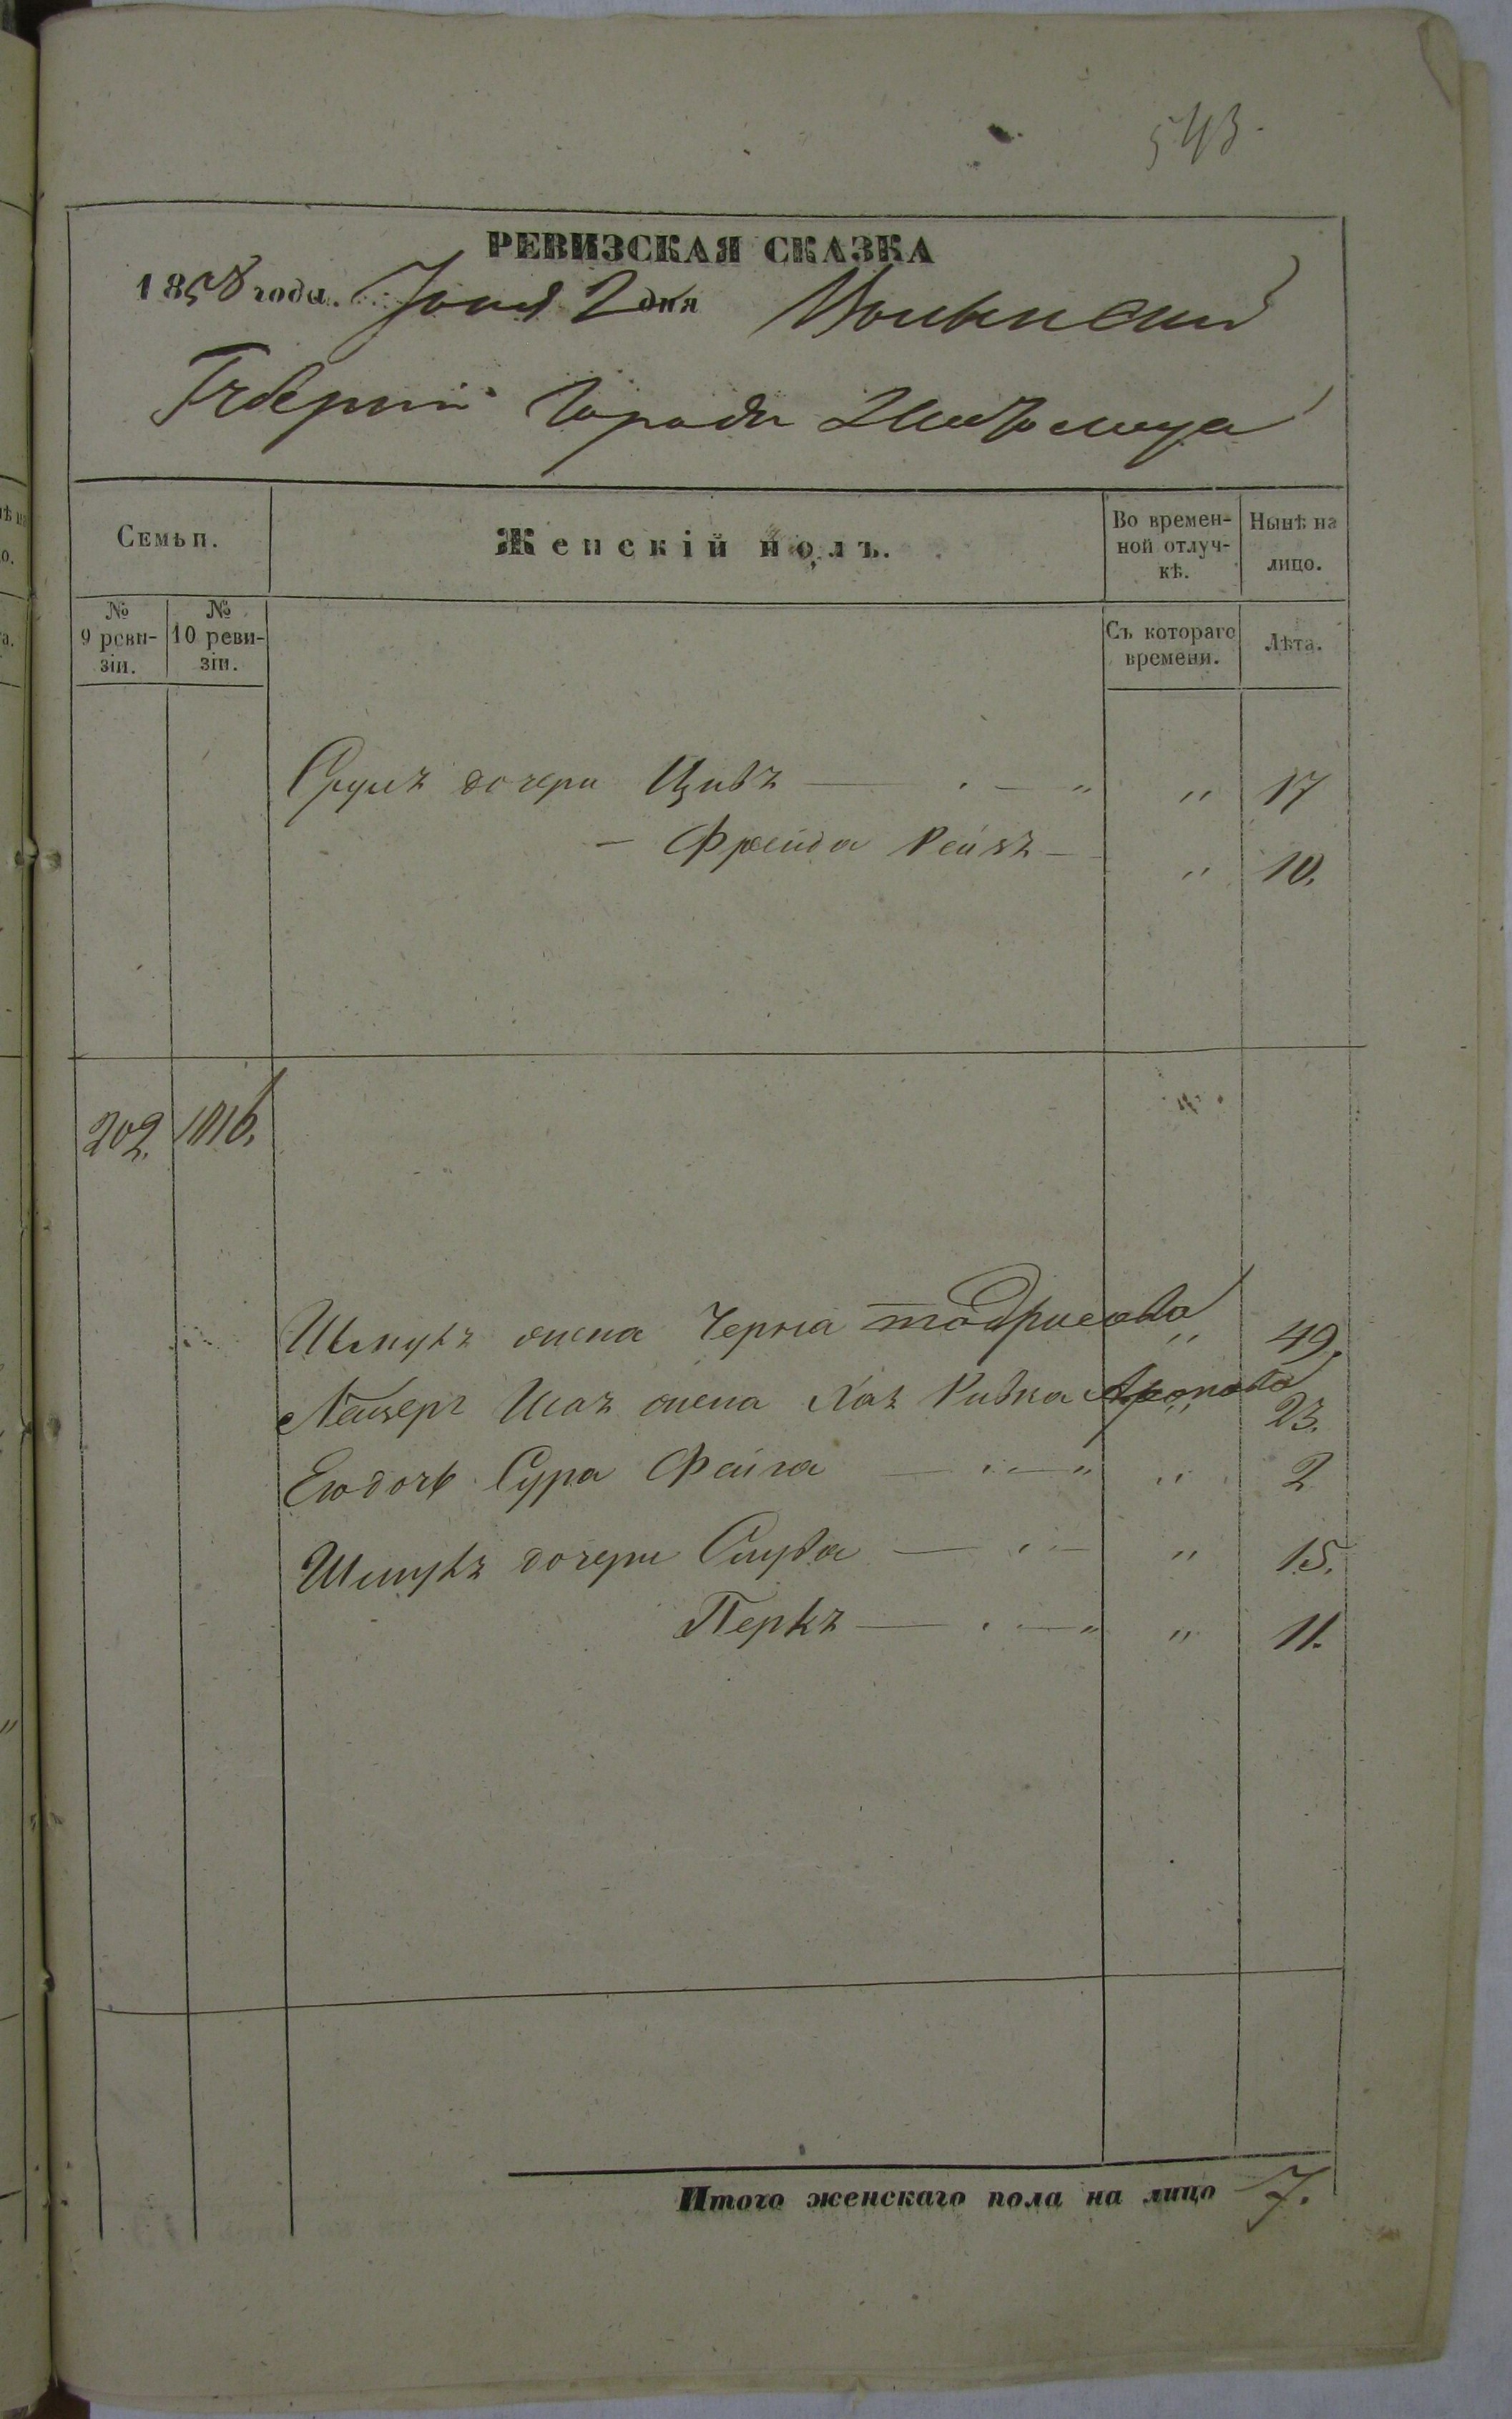 543.
РЕВИЗСКАЯ СКАЗКА
1858 года. Іюня 2 дня Волынской
Губерніи Города Житомира
Семьи.
Женскій полъ.
Во времен-
ной отлуч-
кѣ.
Нынѣ на
лицо.
№
9 реви-
зіи.
№
10 реви-
зіи.
Съ котораго
времени.
Лѣта.
Сруля дочери Цивъ — . — " " 17
— Фрейда Рейзъ — " 10.
202. 1016.
жена Черна Тодрисова " 49.
жена Хая Ривка Аронова " 23.
Ею дочь Сура Фейга — . — " " 2
дочери Слува — . — " 15.
Перкъ — . — " " 11.
Итого женскаго пола на лицо 7.